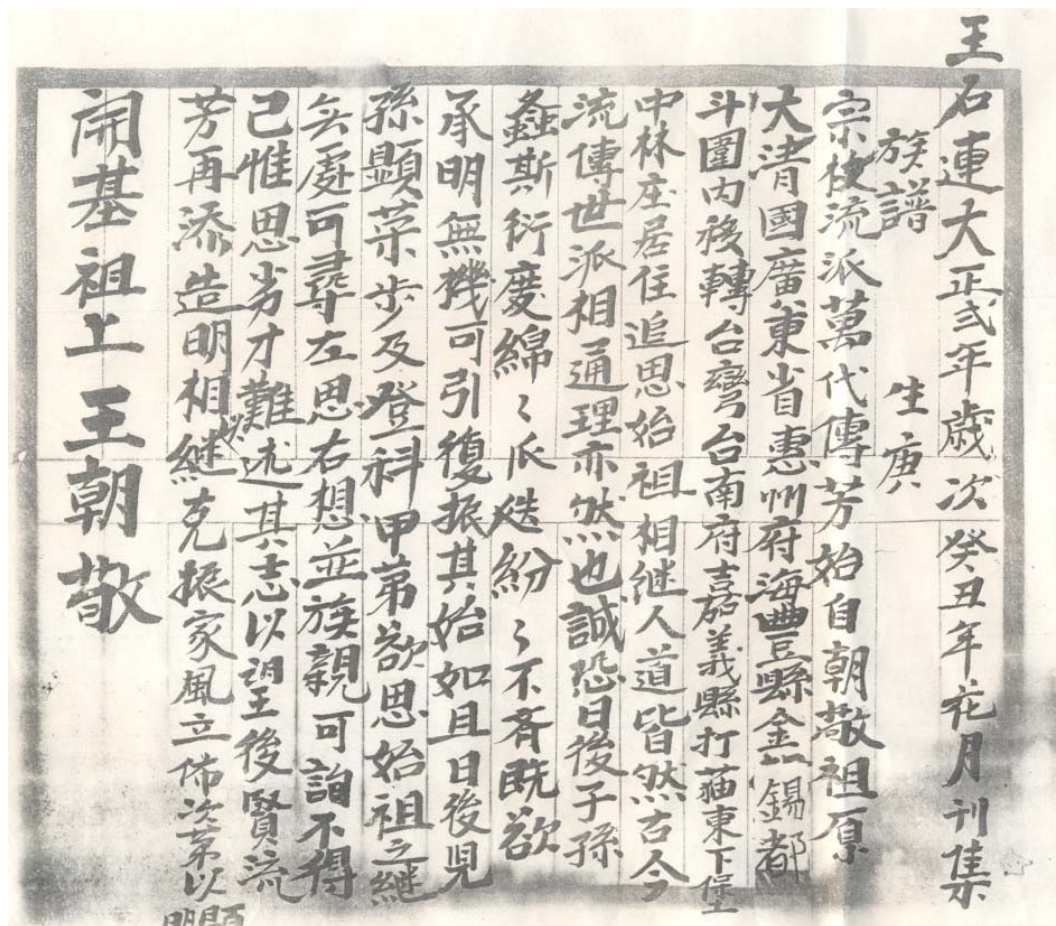 王石連大正弍年歲次癸丑年花月刊集
族譜　生庚
宗枝流派萬代傳芳始自朝敬祖原
大清國廣東省惠州府海豐縣金錫都
斗圍内後轉台灣台南府嘉義縣打猫東下堡
中林庄居住追思始祖相継人道皆然古今
流傳世派相通理亦然也誠恐日後子孫
螽斯衍慶綿〻瓜瓞紛〻不斉既欲
承明無機可引復振其始如且日後児
孫顯荣步及登科甲第欲思始祖之継
矣處可尋左思右想並族親可詢不得
己惟思劣才難述其志以望後賢流
芳再添造明相継以克振家風立佈次第以
顯明
開基祖上王朝敬